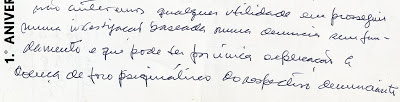 não auferimos qualquer utilidade em prosseguir
numa investigação baseada numa denuncia sem fun-
damento e que pode ser por única explicação a
doença de foro psiquiátrico do respectivo denunciante
1.º ANIVER